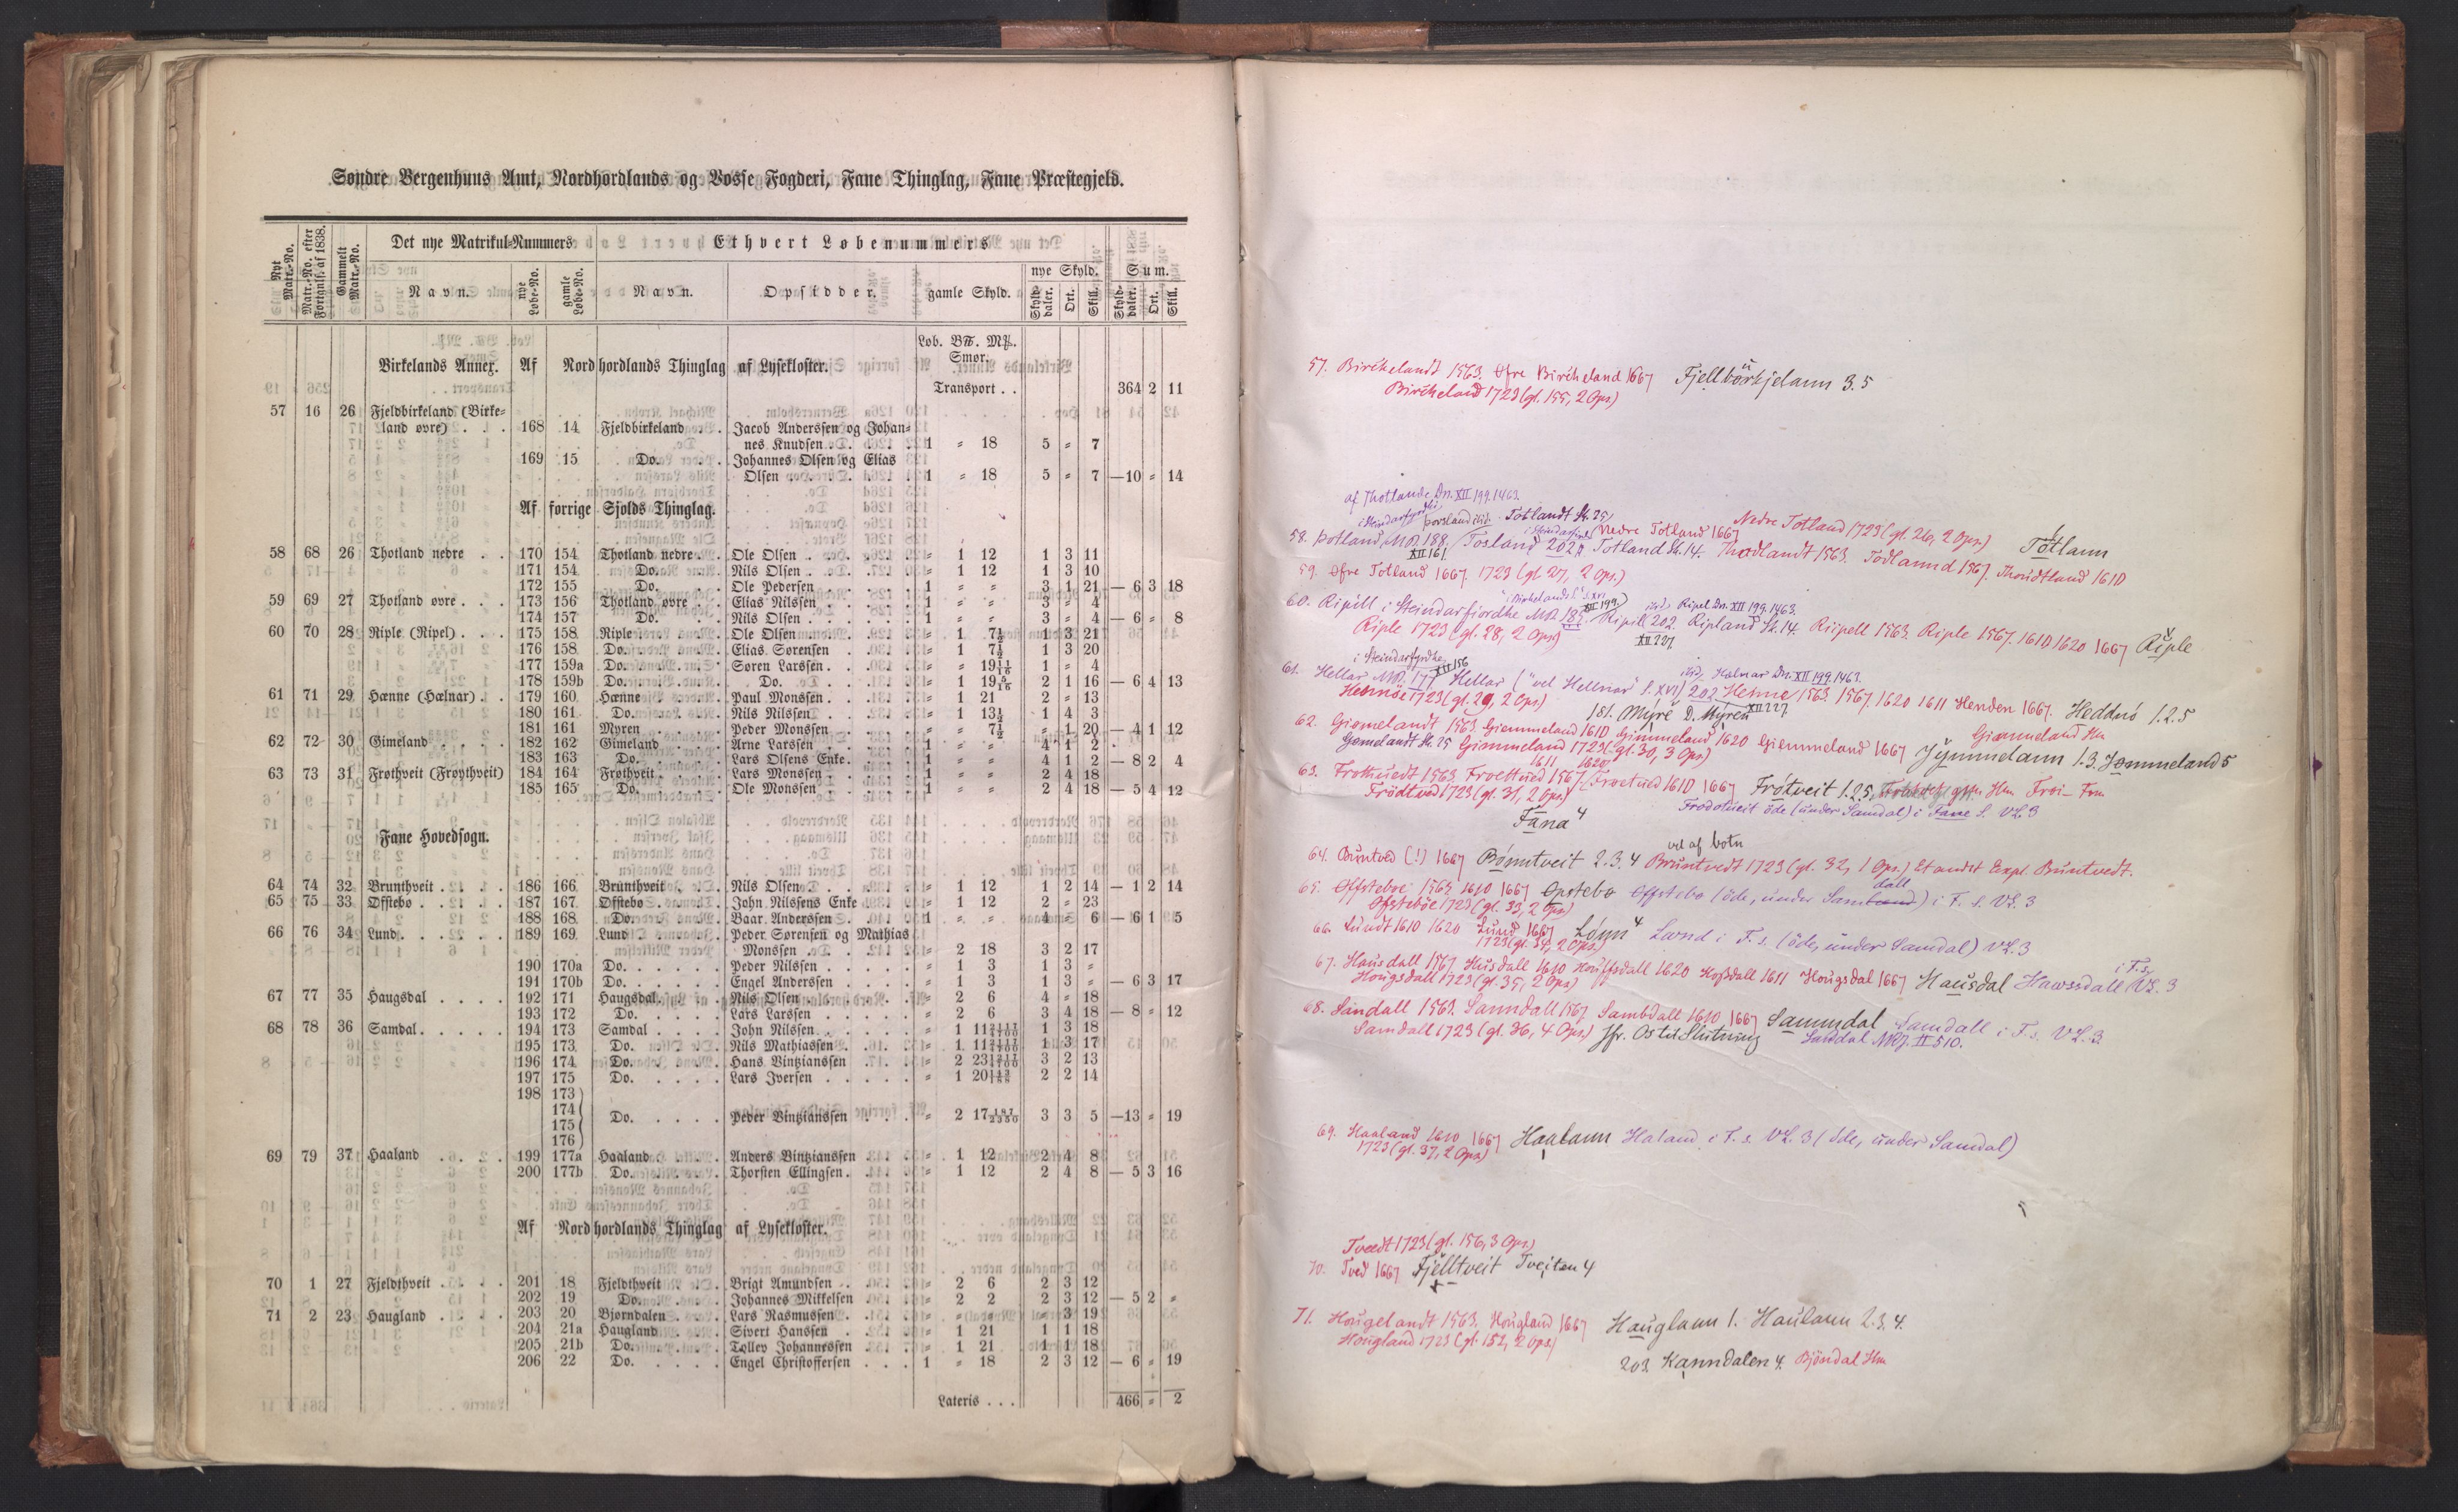 Søndre Bergenhuus Amt, Nordhordlands og Vosse Fogderi, Fane Thinglag, Fane Præstegjeld.
Nyt Matr.-No. Matr.-No. efter Fortgnlf. af 1838. Gammelt Matr.-No. Det nye Matrikul-Nummers Ethvert Løbenummers
nye Skyld. Sum.
Navn. nye Løbe-No. gamle Løbe-No. Navn. Opsidder. gamle Skyld. Skylddaler. Ort. Skill. Skylddaler. Ort. Skill.
Løb. B℔. M℔.
Smør.
Birkelands Annex. Af Nordhordlands Thinglag af Lysekloster.
Transport . . 364 2 11
57 16 26 Fjeldbirkeland (Birke-
land øvre) . . . 168 14 Fjeldbirkeland . . Jacob Anderssen og Johan-
nes Knudsen . . . 1 " 18 5 " 7
169 15 Do. Johannes Olsen og Elias
Olsen . . . 1 " 18 5 " 7 —10 " 14
Af forrige Sjolds Thinglag.
58 68 26 Thotland nedre . . 170 154 Thotland nedre . . Ole Olsen . . . " 1 12 1 3 11
171 154 Do. Nils Olsen . . . " 1 12 1 3 10
172 155 Do. Ole Pedersen . . . 1 " " 3 1 21 — 6 3 18
59 69 27 Thotland øvre . . . 173 156 Thotland øvre . . Elias Nilssen . . . 1 " " 3 " 4
174 157 Do. Nils Olsen . . . 1 " " 3 " 4 — 6 " 8
60 70 28 Riple (Ripel) . . . 175 158 Riple . . . Ole Olsen . . . " 1 7½ 1 3 21
176 158 Do. Elias Sørensen . . . " 1 7½ 1 3 20
177 159a Do. Søren Larssen . . . " " 19 11/16 1 " 4
178 159b Do. Do. . . . " 1 19 5/16 2 1 16 — 6 4 13
61 71 29 Hænne (Hælnar) . . 179 160 Hænne . . . Paul Monssen . . . " 1 21 2 " 13
180 161 Do. Nils Nilssen . . . " 1 13½ 1 4 3
181 161 Myren . . . Peder Monssen . . . " " 7½ " 1 20 — 4 1 12
62 72 30 Gimeland . . . 182 162 Gimeland . . . Arne Larssen . . . 1 " " 4 1 2
183 163 Do. Lars Olsens Enke . . 1 " " 4 1 2 — 8 2 4
63 73 31 Frøthveit (Frøythveit) 184 164 Frøthveit . . . Lars Monssen . . . 1 " " 2 4 18
185 165 Do. Ole Monssen . . . 1 " " 2 4 18 — 5 4 12
Fane Hovedsogn.
64 74 32 Brunthveit . . . 186 166 Brunthveit . . . Nils Olsen . . . " 1 12 1 2 14 — 1 2 14
65 75 33 Øfstebø . . . 187 167 Øfstebø . . . John Nilssens Enke " 1 12 2 " 23
188 168 Do. Baar Anderssen . . . 1 " " 4 " 6 — 6 1 5
66 76 34 Lund . . . 189 169 Lund . . . Peder Sørensen og Mathias
Monssen . . . " 2 18 3 2 17
190 170a Do. . . . Peder Nilssen . . . " 1 3 1 3 "
191 170b Do. . . . Engel Anderssen . . . " 1 3 1 3 " — 6 3 17
67 77 35 Haugsdal . . . 192 171 Haugsdal . . . Nils Olsen . . . " 2 6 4 " 18
193 172 Do. . . . Lars Larssen . . . " 2 6 3 4 18 — 8 " 12
68 78 36 Samdal . . . 194 173 Samdal . . . John Nilssen . . . " 1 11 1 3 18
195 173 Do. . . . Nils Mathiassen . . . " 1 11 1 3 17
196 174 Do. . . . Hans Vintzianssen . . . " 2 23 3 2 13
197 175 Do. . . . Lars Iversen . . . " 1 20 2 2 14
198 173
174
175 Do. . . . Peder Vintzianssen . . . " 2 17 3 3 5 —13 " 19
176
69 79 37 Haaland . . . 199 177a Haaland . . . Anders Vintzianssen . . " 1 12 2 4 8
200 177b Do. . . . Thorsten Ellingsen . . " 1 12 2 4 8 — 5 3 16
Af Nordhordlands Thinglag af Lysekloster.
70 1 27 Fjeldthveit . . . 201 18 Fjeldthveit . . . Brigt Amundsen . . . " 2 6 2 3 12
202 19 Do. Johannes Mikkelsen . . " 2 2 2 3 12 — 5 2 "
71 2 23 Haugland . . . 203 20 Bjørndalen . . . Lars Rasmussen . . . " " " " 3 19
204 21a Haugland . . . Sivert Hanssen . . . " 1 21 1 1 18
205 21b Do. . . . Tollev Johannessen . . " 1 21 1 1 18
206 22 Do. . . . Engel Christoffersen . . . 1 " 18 2 3 12 — 6 " 19
Lateris . . . 466 " 2
57. Birchelandt 1563. Øfre Bircheland 1667 Fjellbörkjelann 3.5
Bircheland 1723 (gl. 155, 2 Ops.)
af Thotlande Dn. XII 199. 1463.
i Steindarfyrdhi Þorsland ibid. Totlandt Sk. 25 Nedre Totland 1723 (gl. 26, 2 Ops.)
58. Þotland MR. 188. Tosland 202 Totland Sk. 14. Nedre Totland 1667 Thodlandt 1563. Todlannd 1567. Thoudtland 1610 Totlann
XII 161
59. Øfre Totland 1667. 1723 (gl. 27, 2 Ops.)
60. Ripill i Steindarfiordhe MR. 187. Ripill 202. ibid. Ripel Dn. XII 199. 1463. Ripland Sk. 14. Riipell 1563. Riple 1567. 1610. 1620 1667 Riple
Riple 1723 (gl. 28, 2 Ops.) XII 227.
i Steindarfyrdhe XII 156 ibid. Halnar Dn. XII 199. 1463.
61. Hellar MR. 177 Hellar ("vel Hellnar" S. XVI) 202 Henne 1563. 1567. 1620 1611 Henden 1667. Heddnó 1.2.5
Hennöe 1723 (gl. 29, 2 Ops.) 181. Mýrē D. Mýren XII 227.
62. Giømelandt 1563. Giemmeland 1610 Gimmeland 1620 Giemmeland 1667 Jymmelann 1.3. Jømmeland 5
Gemelandt Sk. 25 Gimmeland 1723 (gl. 30, 3 Ops) Giømmeland Hm
1611 1620
63. Frothuedt 1563. Froettued 1567. Froetued 1610 1667 Frøtveit 1.2.5. Hm. Frøi- Fm
Frödtved 1723 (gl. 31, 2 Ops.) Frodotueit öde (under Samdal) i Fane S. VL 3
Fana 4
vel af botn
64. Buntved (!) 1667 Bønntveit 2.3.4 Bruntvedt 1723 (gl. 32, 1 Ops.) Et andet Expl. Buntvedt.
65. Offstebøe 1563. 1610 1667 Øpstebø Offstebo (öde, under Samdall) i F. S. VL. 3
Øfstebøe 1723 (gl. 33, 2 Ops)
66. Lundt 1610 1620 Lund 1667 Lónn 4 Lund i F. s. (öde, under Samdal) VL. 3
1723 (gl. 34, 2 Ops.)
67. Hausdall 1567. Husdall 1610 Houffsdall 1620 Hoffdall 1611 Hougsdal 1667 Hausdal Hawssdall i F.s. VL. 3
Hougsdall 1723 (gl. 35, 2 Ops)
68. Sandall 1563. Sanndall 1567. Sambdall 1610 1667 Samndal Samdall i F. s. VL. 3.
Samdall 1723 (gl. 36, 4 Ops.) Jfr. Os til Slutning Sanddal NRJ. II 510.
69. Haaland 1610 1667 Haalann Haland i F. s. VL. 3 (öde, under Samdal)
1723 (gl. 37, 2 Ops.)
Tvedt 1723 (gl. 156, 3 Ops.)
70. Tved 1667 Fjelltveit Tveiten 4
71. Hougelandt 1563. Hougland 1667 Hauglann 1. Haulann 2.3.4.
Hougland 1723 (gl. 152, 2 Ops.)
203. Kanndalen 4. Bjöndal Hm